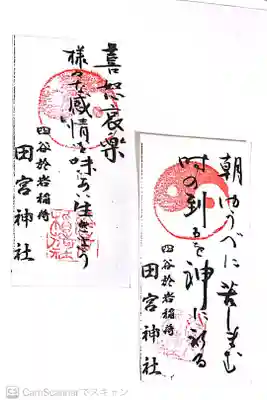 喜怒哀楽
様々な感情を味わい生きよう
四谷於岩稲荷
田宮神社
朝ゆうべに苦しまむ
時の到るを神に祈る
四谷於岩稲荷
田宮神社
CamScanner でスキャン